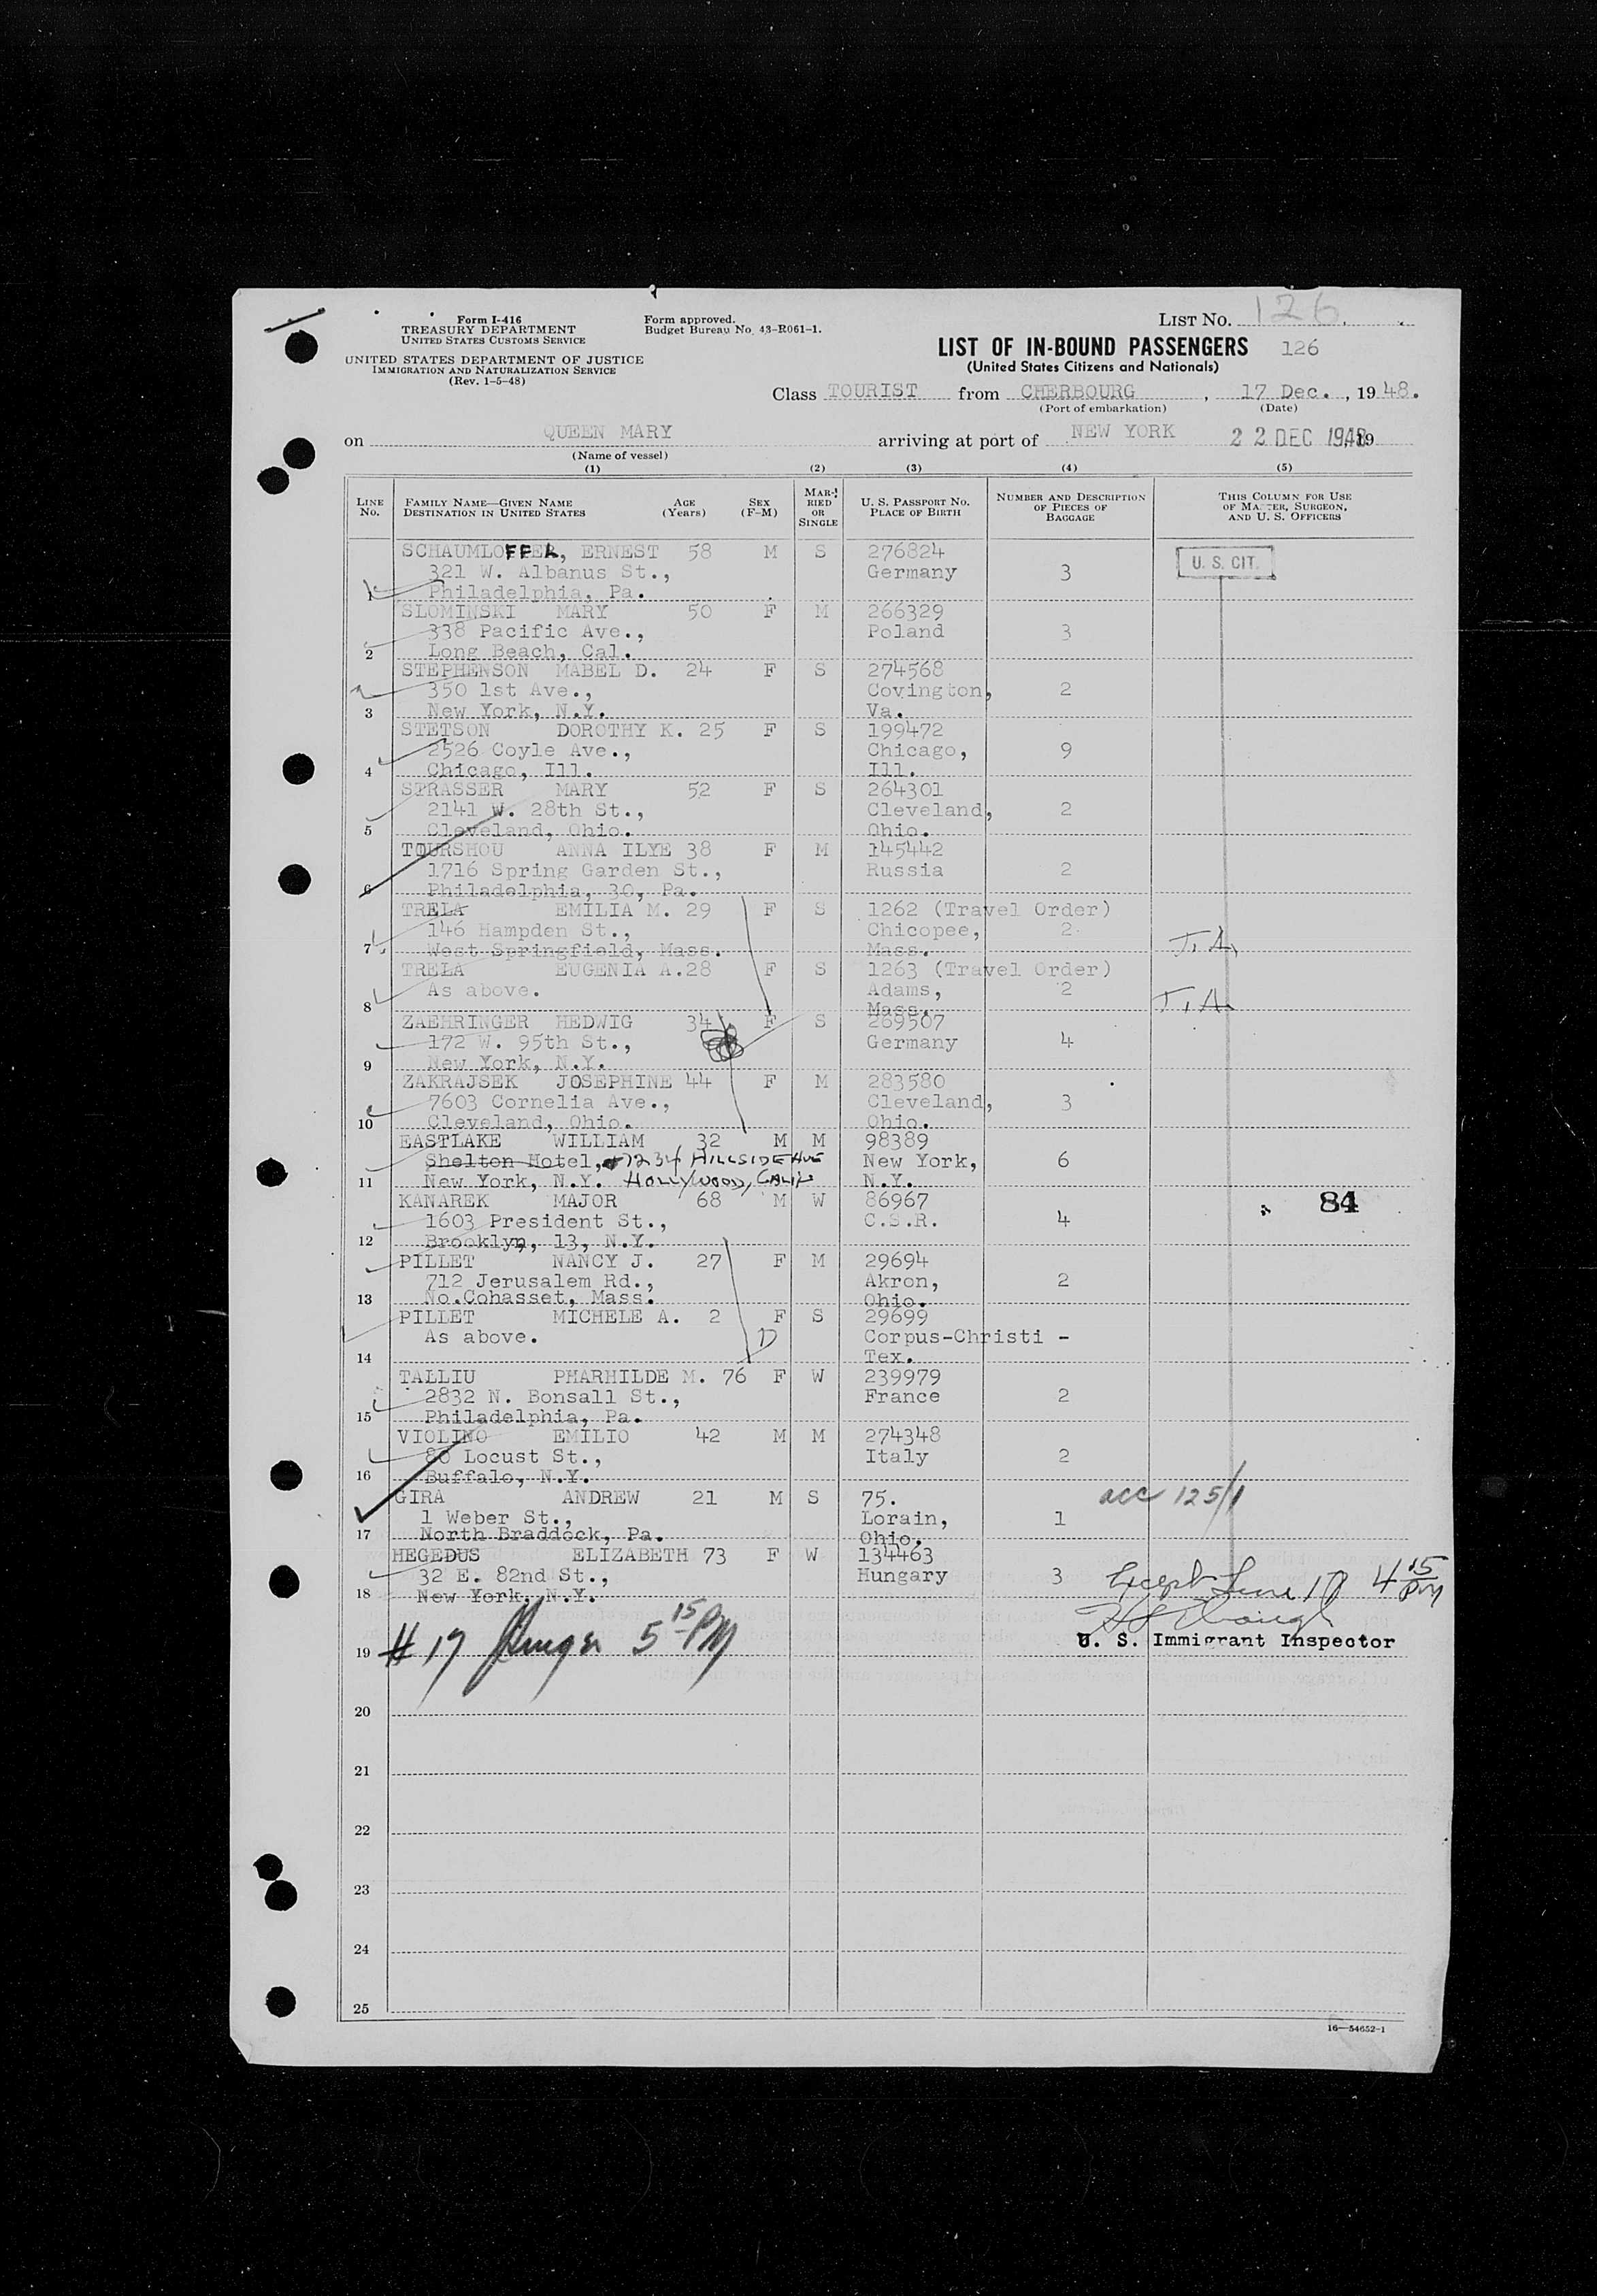 Form I-416
TREASURY DEPARTMENT
UNITED STATES CUSTOMS SERVICE
UNITED STATES DEPARTMENT OF JUSTICE
IMMIGRATION AND NATURALIZATION SERVICE
(Rev. 1-5-48)
Form approved.
Budget Bureau No. 43-R061-1.
LIST NO. 126
LIST OF IN-BOUND PASSENGERS 126
(United States Citizens and Nationals)
Class TOURIST from CHERBOURG, 17 Dec., 1948.
(Port of embarkation) (Date)
on QUEEN MARY arriving at port of NEW YORK 22 DEC 1948 19
(Name of vessel)
(1) (2) (3) (4) (5)
LINE NO. FAMILY NAME—GIVEN NAME DESTINATION IN UNITED STATES AGE (Years) SEX (F-M) MARRIED OR SINGLE U. S. PASSPORT NO. PLACE OF BIRTH NUMBER AND DESCRIPTION OF PIECES OF BAGGAGE THIS COLUMN FOR USE OF MASTER, SURGEON, AND U. S. OFFICERS
SCHAUMLOFFER, ERNEST 58 M S 276824
321 W. Albanus St., Germany 3 U. S. CIT.
1 Philadelphia, Pa.
SLOMINSKI MARY 50 F M 266329
338 Pacific Ave., Poland 3
2 Long Beach, Cal.
STEPHENSON MABEL D. 24 F S 274568
350 1st Ave., Covington, 2
3 New York, N.Y. Va.
STETSON DOROTHY K. 25 F S 199472
2526 Coyle Ave., Chicago, 9
4 Chicago, Ill. Ill.
STRASSER MARY 52 F S 264301
2141 W. 28th St., Cleveland, 2
5 Cleveland, Ohio. Ohio.
TOURSHOU ANNA ILYE 38 F M 145442
1716 Spring Garden St., Russia 2
6 Philadelphia, 30, Pa.
TRELA EMILIA M. 29 F S 1262 (Travel Order)
146 Hampden St., Chicopee, 2
7 West Springfield, Mass. Mass. T.A.
TRELA EUGENIA A. 28 F S 1263 (Travel Order)
As above. Adams, 2
8 Mass. T.A.
ZAEHRINGER HEDWIG 34 F S 269507
172 W. 95th St., Germany 4
9 New York, N.Y.
ZAKRAJSEK JOSEPHINE 44 F M 283580
7603 Cornelia Ave., Cleveland, 3
10 Cleveland, Ohio. Ohio.
EASTLAKE WILLIAM 32 M M 98389
Shelton Hotel, 7234 HILLSIDE AVE New York, 6
11 New York, N.Y. HOLLYWOOD, CALIF N.Y.
KANAREK MAJOR 68 M W 86967 84
1603 President St., C.S.R. 4
12 Brooklyn, 13, N.Y.
PILLET NANCY J. 27 F M 29694
712 Jerusalem Rd., Akron, 2
13 No.Cohasset, Mass. Ohio.
PILLET MICHELE A. 2 F S 29699
As above. Corpus-Christi -
14 Tex.
TALLIU PHARHILDE M. 76 F W 239979
2832 N. Bonsall St., France 2
15 Philadelphia, Pa.
VIOLINO EMILIO 42 M M 274348
80 Locust St., Italy 2
16 Buffalo, N.Y.
GIRA ANDREW 21 M S 75. acc 125/1
1 Weber St., Lorain, 1
17 North Braddock, Pa. Ohio.
HEGEDUS ELIZABETH 73 F W 134463
32 E. 82nd St., Hungary 3 Except Line 17 4 15 PM
18 New York, N.Y.
U. S. Immigrant Inspector
19 # 17 5 15 PM
20
21
22
23
24
25
16—54652-1